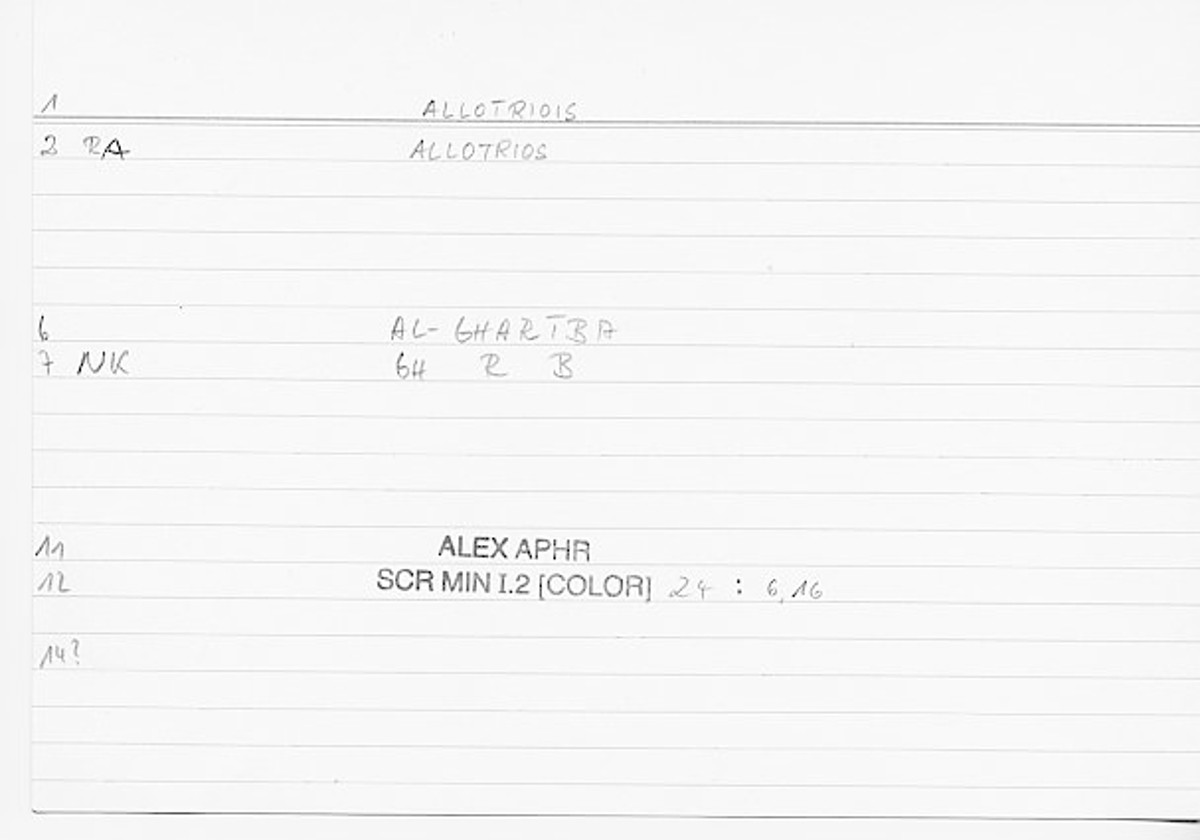 1 ALLOTRIOIS
2 RA ALLOTRIOS
6 AL-GHARĪBA
7 NK GH R B
11 ALEX APHR
12 SCR MIN I.2 [COLOR] 24 : 6,16
14?